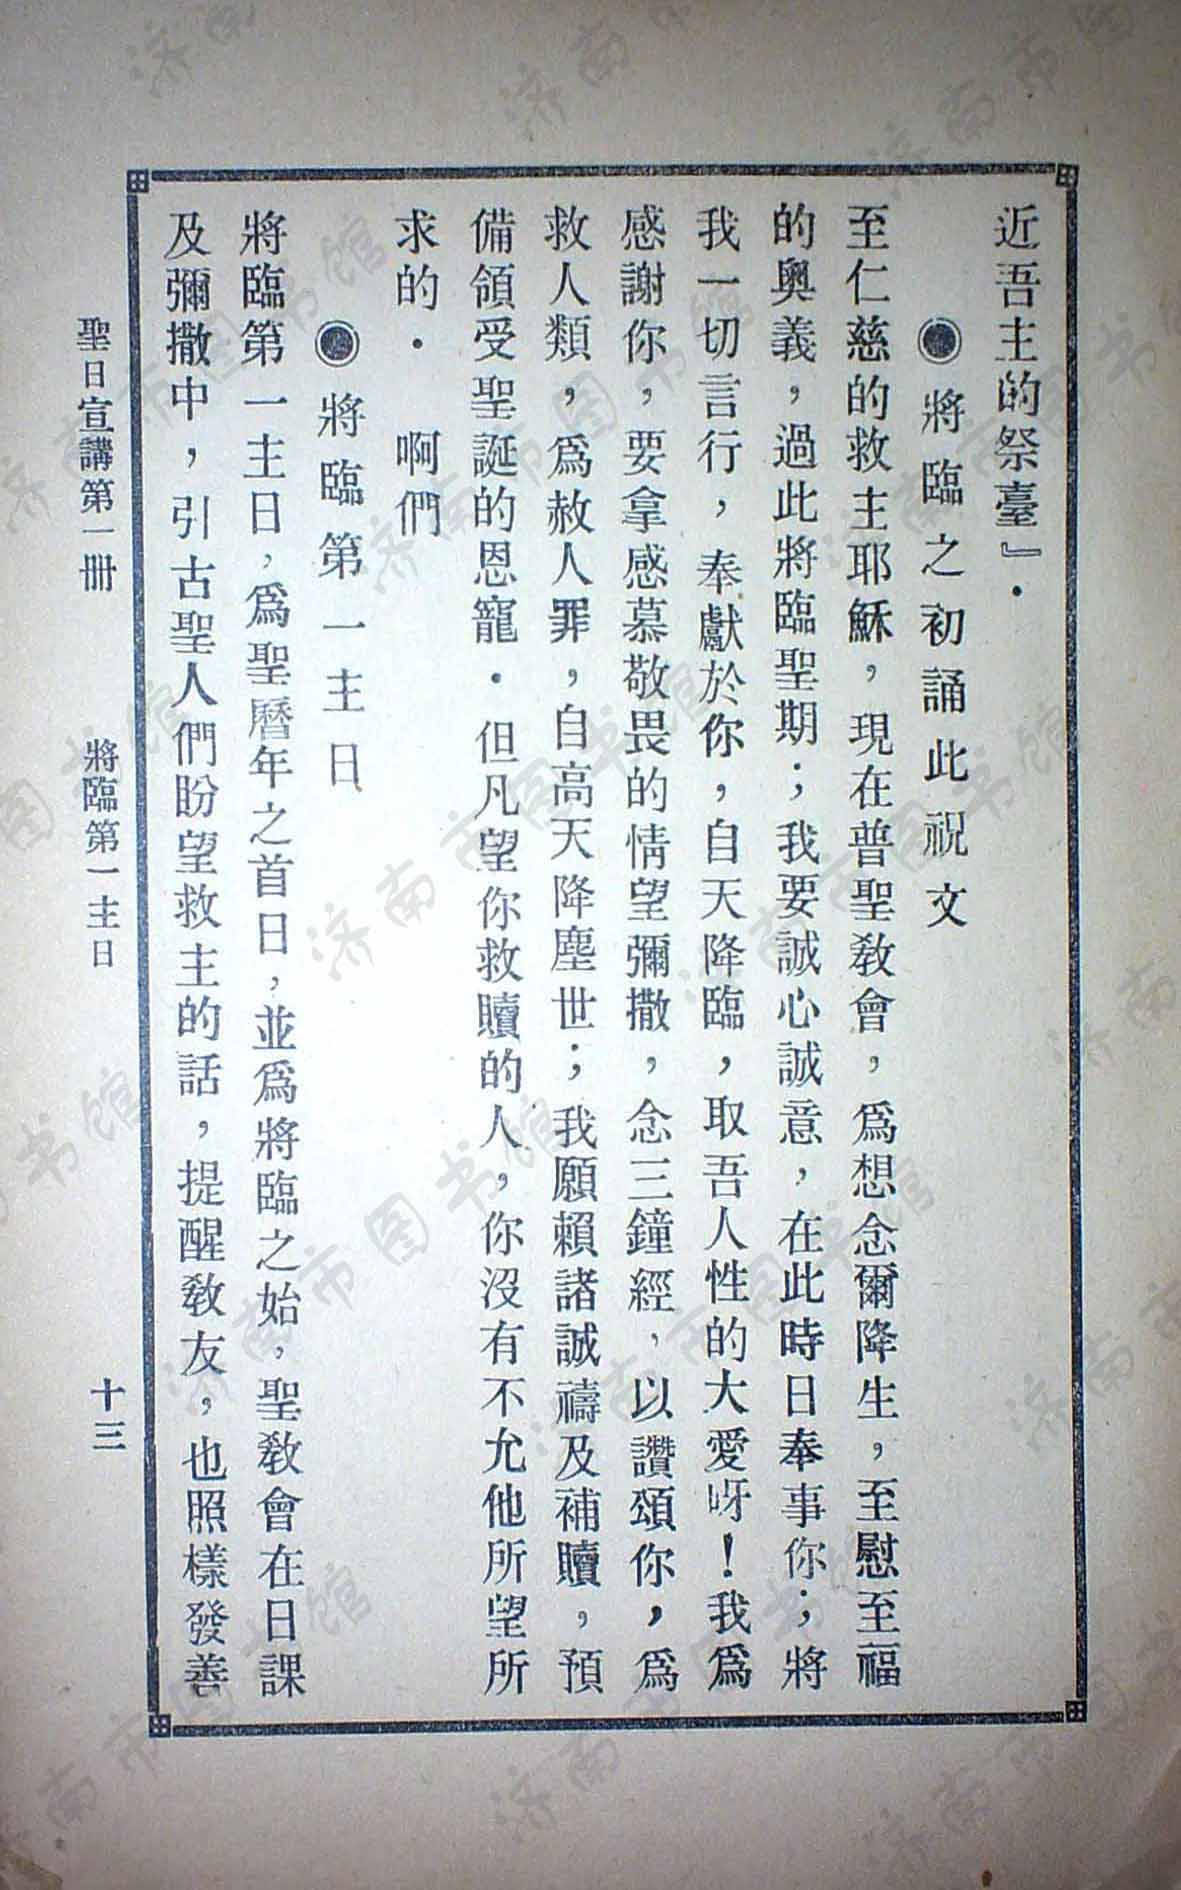 近吾主的祭臺』．
◉將臨之初誦此祝文
至仁慈的救主耶穌，現在普聖敎會，爲想念爾降生，至慰至福
的奧義，過此將臨聖期；我要誠心誠意，在此時日奉事你；將
我一切言行，奉獻於你，自天降臨，取吾人性的大愛呀！我爲
感謝你，要拿感慕敬畏的情望彌撒，念三鐘經，以讚頌你，爲
救人類，爲赦人罪，自高天降塵世；我願賴諸誠禱及補贖，預
備領受聖誕的恩寵．但凡望你救贖的人，你沒有不允他所望所
求的．　啊們
◉將臨第一主日
將臨第一主日，爲聖曆年之首日，並爲將臨之始，聖敎會在日課
及彌撒中，引古聖人們盼望救主的話，提醒敎友，也照樣發善
聖日宣講第一冊　將臨第一主日　十三
济南市图书馆